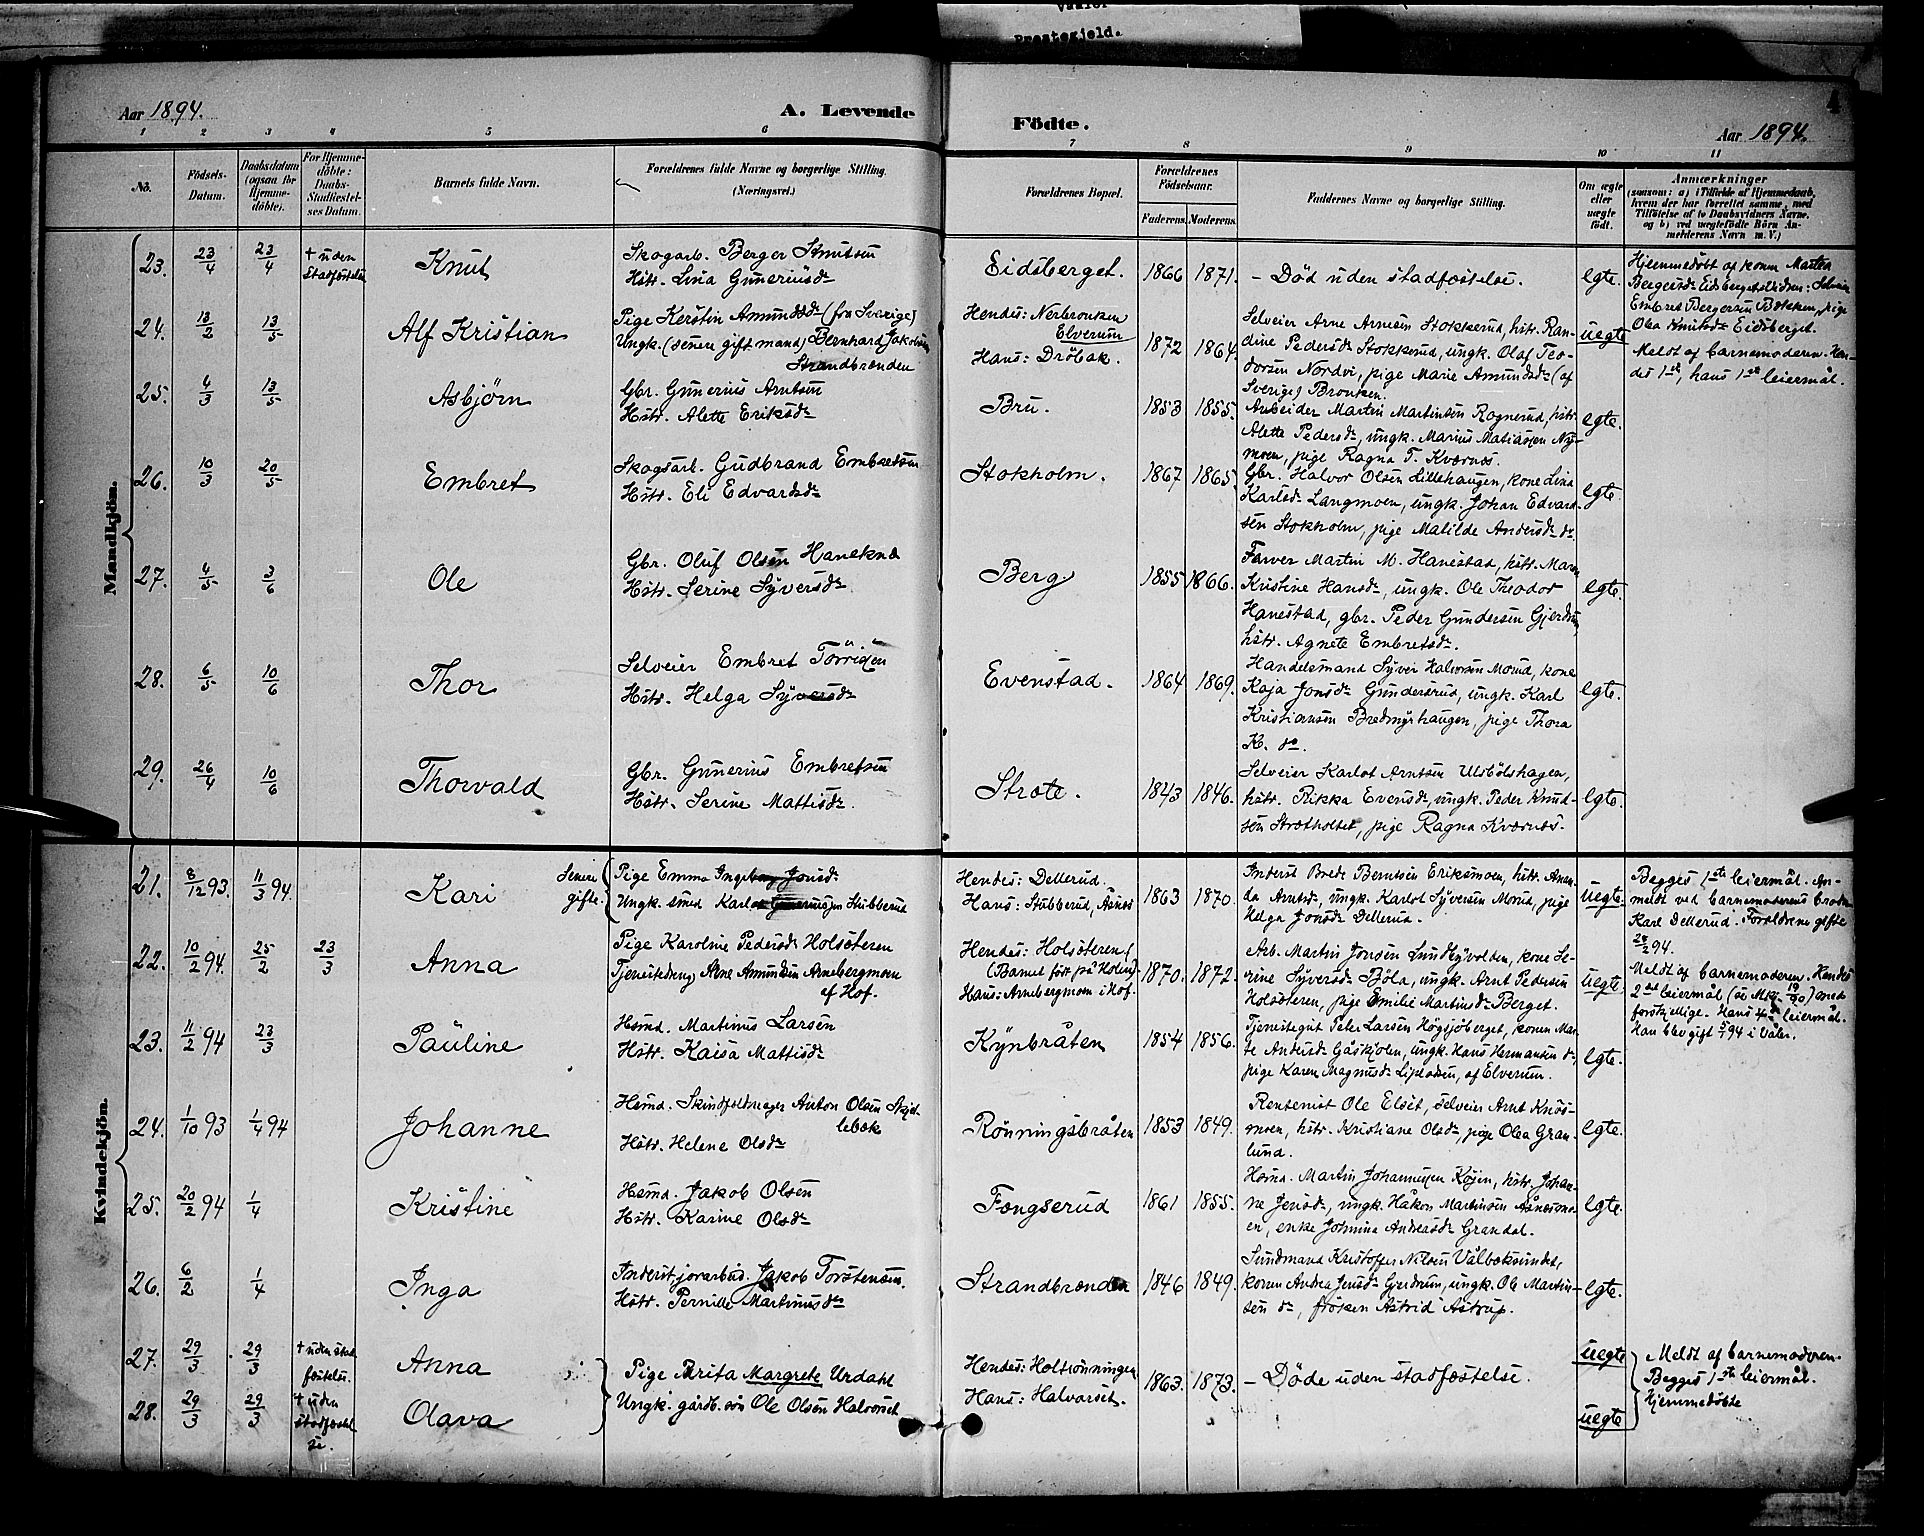 Vaaler
Prestegjeld.
Aar 1894. A. Levende
Födte. Aar 1894.
4
1 2 3 4 5 6 7 8 9 10 11
No. Födsels-Datum. Daabsdatum (ogsaa for Hjemme-döbte). For Hjemme-döbte: Daabs-Stadfæstel-ses Datum. Barnets fulde Navn. Forældrenes fulde Navne og borgerlige Stilling. (Næringsvei.)
Forældrenes Bopæl. Forældrenes Födselsaar. Faderens. Moderens. Faddernes Navne og borgerlige Stilling. Om ægte eller uægte födt. Anmærkninger
(saasom: a) i Tilfælde af Hjemmedaab,
hvem der har forrettet samme, med
Tilföielse af to Daabsvidners Navne,
og b) ved uægtefödte Börn An-
melderens Navn m. V.)
Mandkjön.
23. 23/4 23/4 + uden stadfæstelse Knut
Skogarb. Berger Knutsen
Hstr. Lina Gunerinsd.
Eidsberget. 1866 1871. - Död uden stadfæstelse. egte.
Hjemmedöbt af konen Martea
24. 13/2 13/5 Alf Kristian
Pige Kerstin Amundsd. (fra Sverige)
Ungk. (senere gift mand) Bernhard Jakobsen
Strandbrænden
Hendes: Nerbrouken
Elverum
Hans: Dröbak.
1872 1864.
Selveier Arne Arnesen Stokkerud, hstr. Ran-
dine Pedersd. Stokkerud, ungk. Olaf Teo-
dorsen Nordvi, pige Marie Amundsd. (af
Sverige) Brouken.
uegte
Meldt af barnemoderen. Hen-
des 1ste, hans 1ste leiermål.
25. 4/3 13/5 Asbjörn
Gbr. Gunerius Arntsen
Hstr. Alette Eriksd.
Bru. 1853 1855.
Arbeider Martin Martinsen Rognerud, hstr.
Alette Pedersd., ungk. Marius Matiassen Ny-
moen, pige Ragna T. Kværnes.
egte.
26. 10/3 20/5 Embret
Skogsarb. Gudbrand Embretsen
Hstr. Eli Edvardsd.
Stokholm. 1867 1865
Gbr. Halvor Olsen Lillehaugen, kone Lina
Karlsd. Langmoen, ungk. Johan Edvard-
sen Stokholm, pige Matilde Andersd. do
egte.
27. 4/5 3/6 Ole
Gbr. Oluf Olsen
Hstr. Serine Syversd.
Berg 1855 1866.
Farver Martin M. Hanestad, hstr. Maren
Kristine Hansd., ungk. Ole Theodor
Hanestad, gbr. Peder Gundersen Gjerdrum,
hstr. Agnete Embretsd.
egte.
28. 6/5 10/6 Thor
Selveier Embret Törrisen
Hstr. Helga Syversd.
Evenstad. 1864 1869.
Handelsmand Syver Halvorsen Morud, kone
Kaja Jonsd. Gunderstrud, ungk. Karl
Kristiansen Bredmyrhaugen, pige Thora
K. do.
egte.
29. 26/4 10/6 Thorvald
Gbr. Gunerius Embretsen
Hstr. Serine Mattisd.
Strate. 1843 1846.
Selveier Karlot Arntsen Ulsbölshagen,
hstr. Rikka Evensd., ungk. Peder Knud-
sen Strætholtet, pige Ragna Kværnæs.
egte.
Kvindekjön.
21. 8/12 93. 11/3 94. Kari
Senere gifte.
Pige Emma Ingeborg Jonsd.
Ungk. smed Karl Stubberud
Hendes: Dellerud.
Hans: Stubberud, Åsnes
1863 1870.
Inderst Brede Berntsen Eriksmoen, hstr. Anan-
da Arntsd., ungk. Karlot Syversen Morud, pige
Helga Jonsd. Dellerud.
uegte.
Begges 1ste leiermål. An-
meldt ved barnemoderens broder
Karl Dellerud. Forældrene gifte
28/2 94.
22. 10/2 94. 25/2 23/3 Anna
Pige Karoline Pedersd. Holsöteren
Tjenestedreng Arne Amundsen Arnebergmoen
af Hof.
Hendes: Holsöteren
(Barnet födt på Holen)
Hans: Arnebergmoen i Hof.
1870. 1872.
Arb. Martin Jonsen Lundbyvolden, kone Se-
rine Syversd. Böla, ungk. Arnt Pedersen
Holsöteren, pige Emilie Martinsd. Berget.
uegte.
Meldt af barnemoderen. Hendes
2det leiermål (se Mk. 19/90) med
forskjellige. Hans 4de leiermål.
Han blev gift 94 i Våler.
23. 11/2 94 23/3 Pauline
Hsmd. Martinus Larsen
Hstr. Kaisa Mattisd.
Kynbråten 1854 1856.
Tjenestegut Peter Larsen Högsjöberget, konen Mar-
te Andersd. Gåskjolen, ungk. Hans Hermansen do,
pige Karen Magnusd. af Elverum.
egte.
24. 1/10 93 1/4 94 Johanne
Hsmd. Skindfeldmager Anton Olsen Skjet-
lebæk
Hstr. Helene Olsd.
Rönningsbråten 1853 1849.
Rentenist Ole Elset, selveier Arnt Knös-
moen, hstr. Kristiane Olsd., pige Olea Gran-
lund.
egte.
25. 20/2 94 1/4 Kristine
Hsmd. Jakob Olsen
Hstr. Karine Olsd.
Fongserud 1861 1855.
Hsmd. Martin Johannesen Köjen, hstr. Johan-
ne Jensd., ungk. Håkon Martinsen Åsnesmo-
en, enke Johnina Andersd. Grandal.
egte.
26. 6/2 1/4 Inga
Inderst, jorarbeid. Jakob Torstensen.
Hstr. Pernille Martinusd.
Strandbrænden 1846 1849.
Sundmand Kristoffer Nilsen Vålbæksundet,
konen Andrea Jensd. Gjerdrum, ungk. Ole Martin-
sen do, fröken Astrid Astrup.
egte.
27. 29/3 29/3 + uden stadfæstelse. Anna
Pige Brita Margrete Urdahl
Ungk. gårdb. sön Ole Olsen Halvorset
Hendes: Holtrönningen
Hans: Halvarset.
1863. 1873. - Döde uden stadfæstelse.
uegte
Meldt af barnemoderen.
Begges 1ste leiermål.
Hjemmedöbte
28. 29/3 29/3 + uden stadfæstelse. Olava
uegte